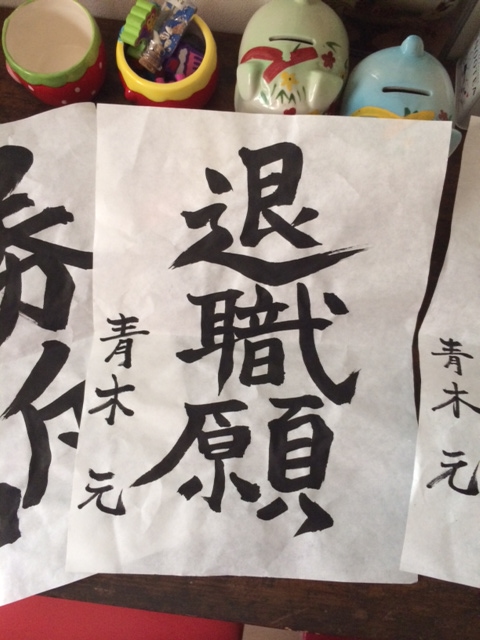 退職願
青木 元
青木 元